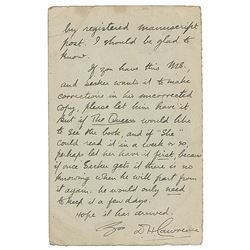 by registered manuscript
post. I should be glad to
know.
If you have this MS.
and Secker wants it to make
corrections in his uncorrected
copy, please let him have it
But if The Queen would like
to see the book, and if "She"
could read it in a week or so,
perhaps let her have it first, because if
once Secker gets it there is no
knowing when he will part from
it again. He would only need
to keep it a few days.
Hope it has arrived.
D H Lawrence